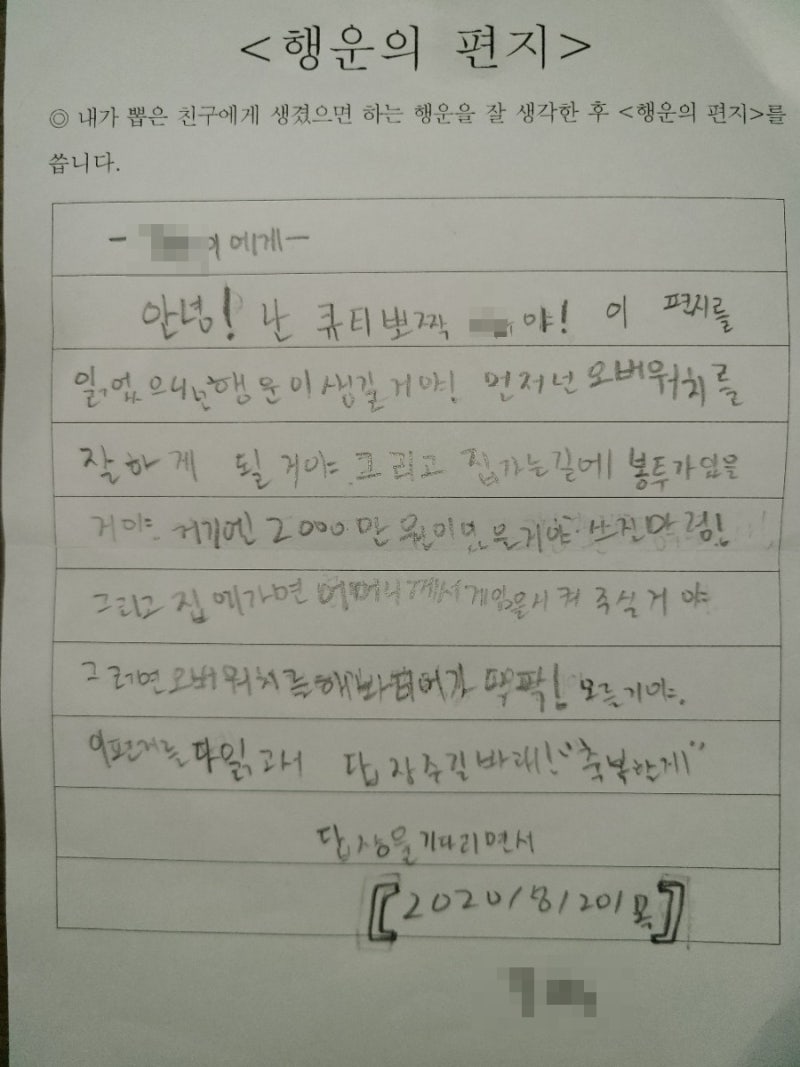 <행운의 편지>
◎ 내가 뽑은 친구에게 생겼으면 하는 행운을 잘 생각한 후 <행운의 편지>를
씁니다.
- 이에게-
안녕! 난 큐티뽀짝 야! 이 편지를
읽었으니 넌 행운이 생길거야! 먼저 넌 오버워치를
잘하게 될거야. 그리고 집가는길에 봉투가 있을
거야. 거기엔 2000만 원이 있을거야.
그리고 집에가면 어머니께서 게임을 시켜 주실거야
그러면 오버워치를 해봐 티어가 팍! 오를거야.
이편지를 다 읽고서 답장주길 바래! "축복할게!"
답장을 기다리면서
[2020/8/20/목]